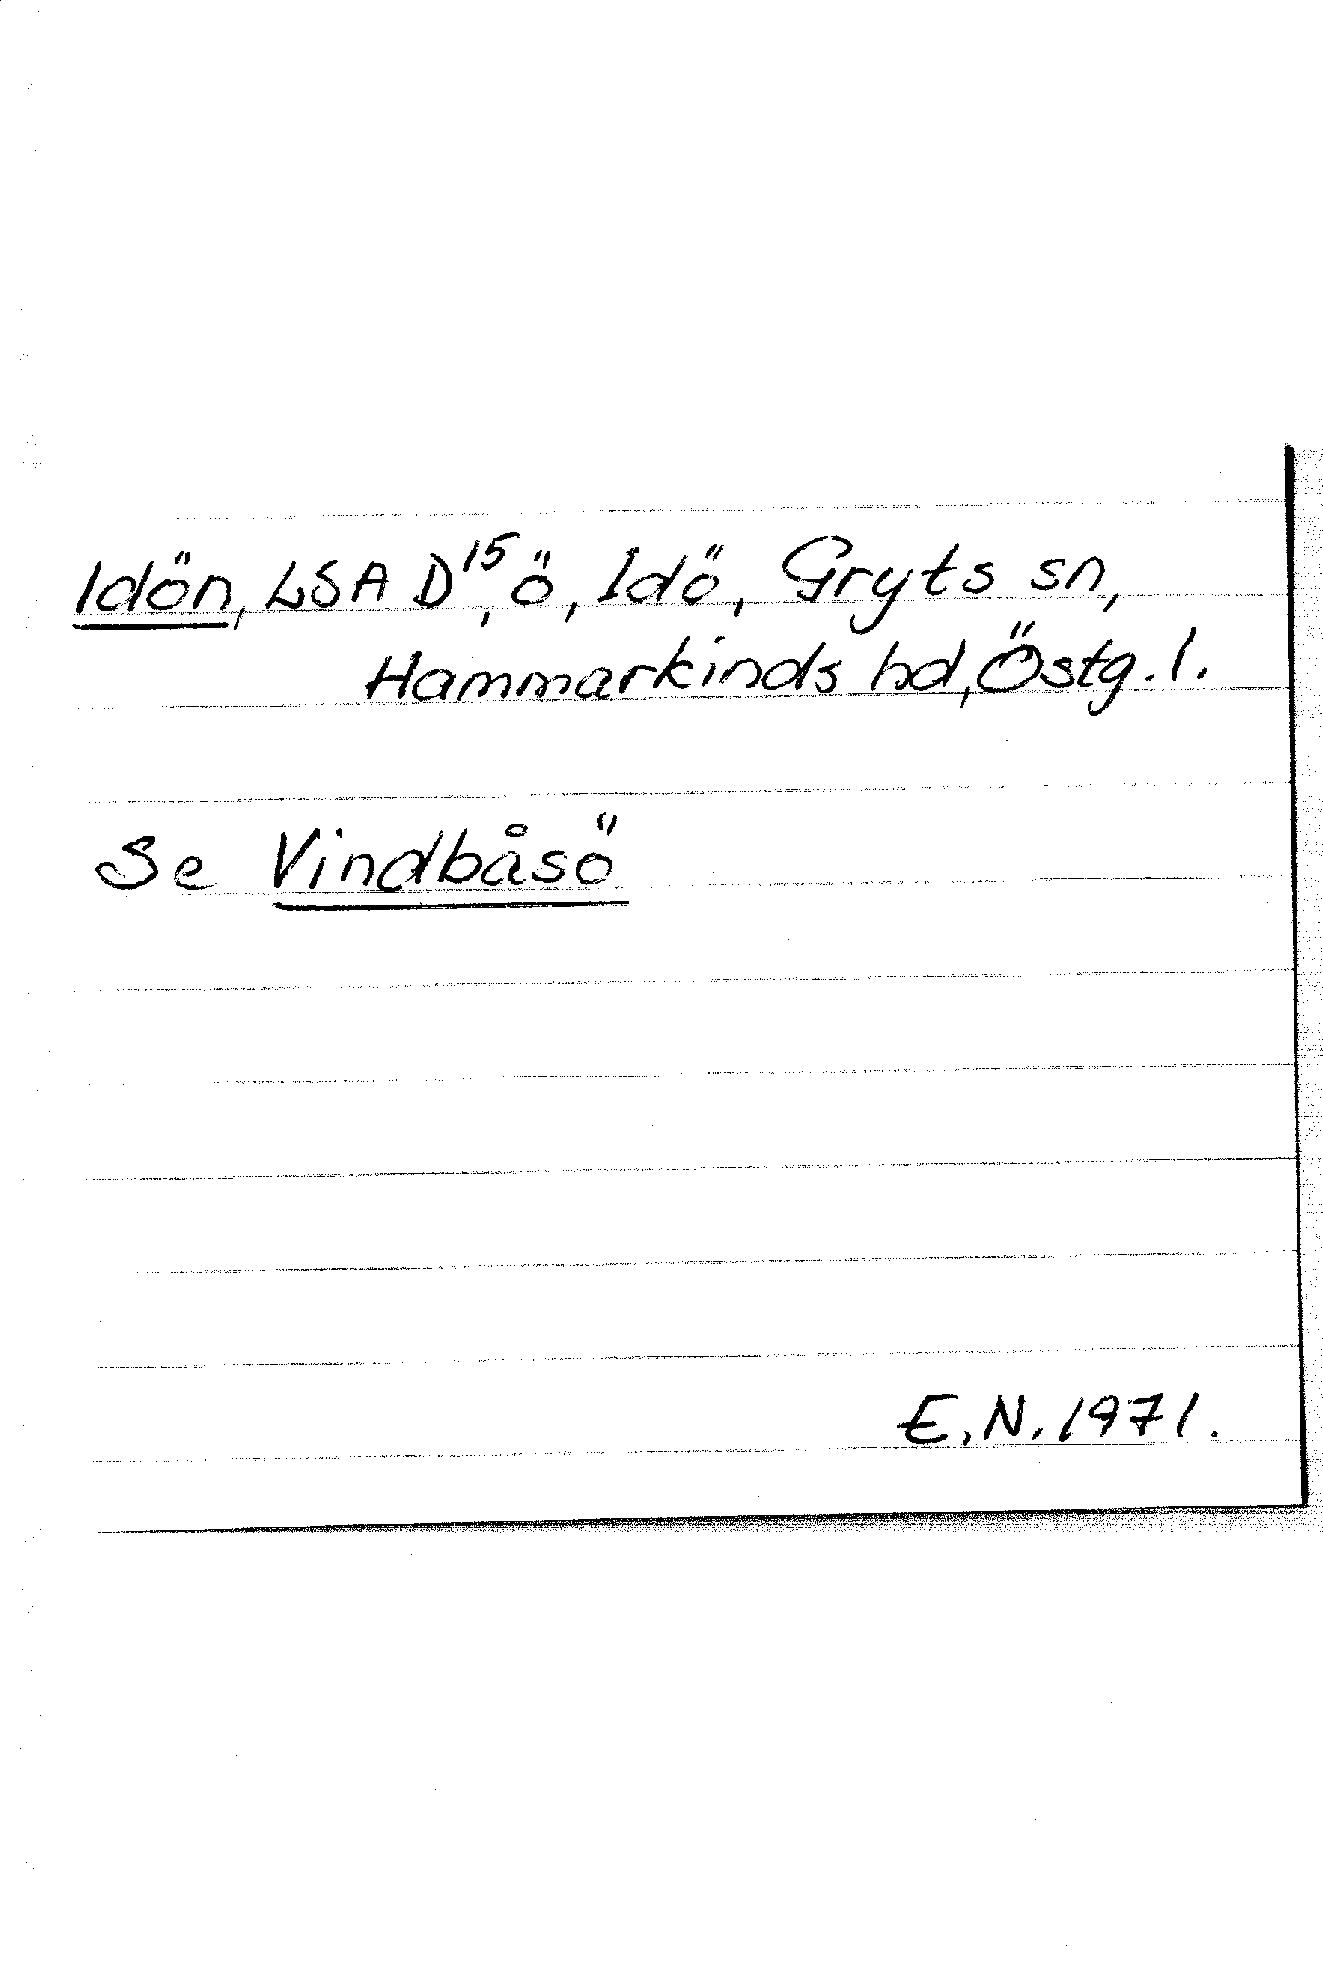 Idön, LSA D¹⁵, ö, Idö, Gryts sn,
Hammarkinds hd, Östg. l.
Se Vindbåsö
E.N. 1971.